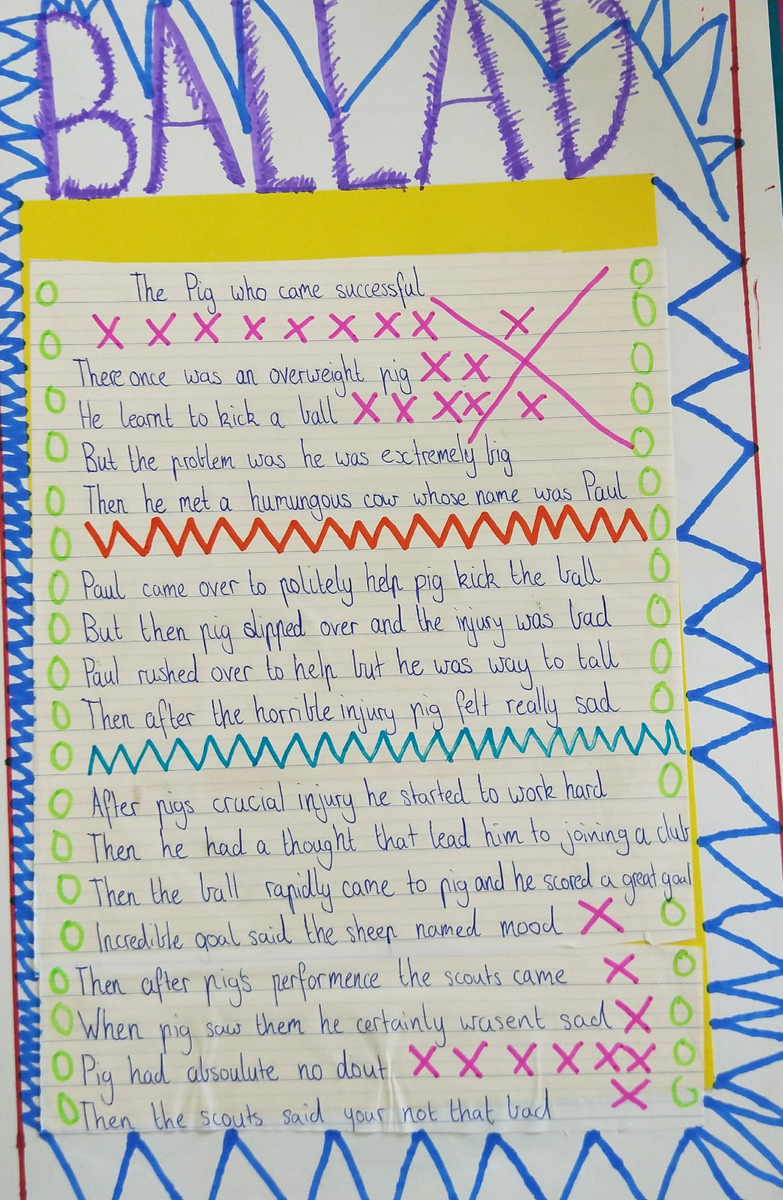 BALLAD
The Pig who came successful
There once was an overweight pig
He learnt to kick a ball
But the problem was he was extremely big
Then he met a humungous cow whose name was Paul
Paul came over to politely help pig kick the ball
But then pig slipped over and the injury was bad
Paul rushed over to help but he was way to tall
Then after the horrible injury pig felt really sad
After pigs crucial injury he started to work hard
Then he had a thought that lead him to joining a club
Then the ball rapidly came to pig and he scored a great goal
Incredible goal said the sheep named mood
Then after pig's performence the scouts came
When pig saw them he certainly wasent sad
Pig had absoulute no dout
Then the scouts said your not that bad